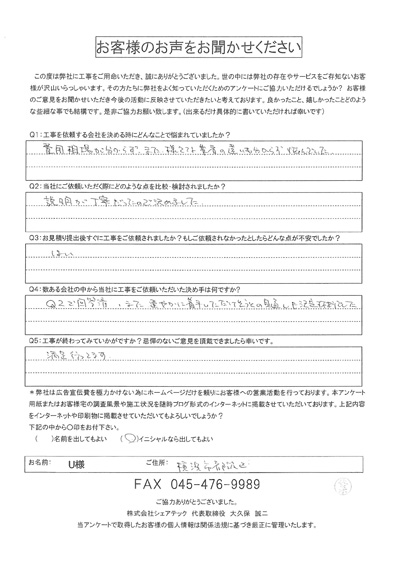 お客様のお声をお聞かせください
この度は弊社に工事をご用命いただき、誠にありがとうございました。世の中には弊社の存在やサービスをご存知ないお客
様が沢山いらっしゃいます。その方たちに弊社をよく知っていくためのアンケートにご協力いただけるでしょうか? お客様
のご意見をお聞かせいただき今後の活動に反映させていただきたいと考えております。良かったこと、嬉しかったことどのよう
な些細な事でも結構です。是非ご協力お願い致します。(出来るだけ具体的に書いていただければ幸いです)
Q1:工事を依頼する会社を決める時にどんなことで悩まれていましたか?
費用相場が分からず、また 様々な業者の違いも分からず悩んでいた
Q2:当社にご依頼いただく際にどのような点を比較・検討されましたか?
説明が丁寧だったので決めました
Q3:お見積り提出後すぐに工事をご依頼されましたか?もしご依頼されなかったとしたらどんな点が不安でしたか?
はい
Q4:数ある会社の中から当社に工事をご依頼いただいた決め手は何ですか?
Q2で回答済、また 速やかに着手していただけそうとの
Q5:工事が終わってみていかがですか?忌憚のないご意見を頂戴できましたら幸いです。
満足行ってます
＊弊社は広告宣伝費を極力かけない為にホームページだけを頼りにお客様への営業活動を行っております。本アンケート
用紙またはお客様宅の調査風景や施工状況を随時ブログ形式のインターネットに掲載させていただいております。上記内容
をインターネットや印刷物に掲載させていただいてもよろしいでしょうか?
下記の中から○印をお付下さい。
( )名前を出してもよい (○)イニシャルなら出してもよい
お名前: U様 ご住所: 横浜市都筑区
FAX 045-476-9989
ご協力ありがとうございました。
株式会社シェアテック 代表取締役 大久保 誠二
当アンケートで取得したお客様の個人情報は関係法規に基づき厳正に管理いたします。